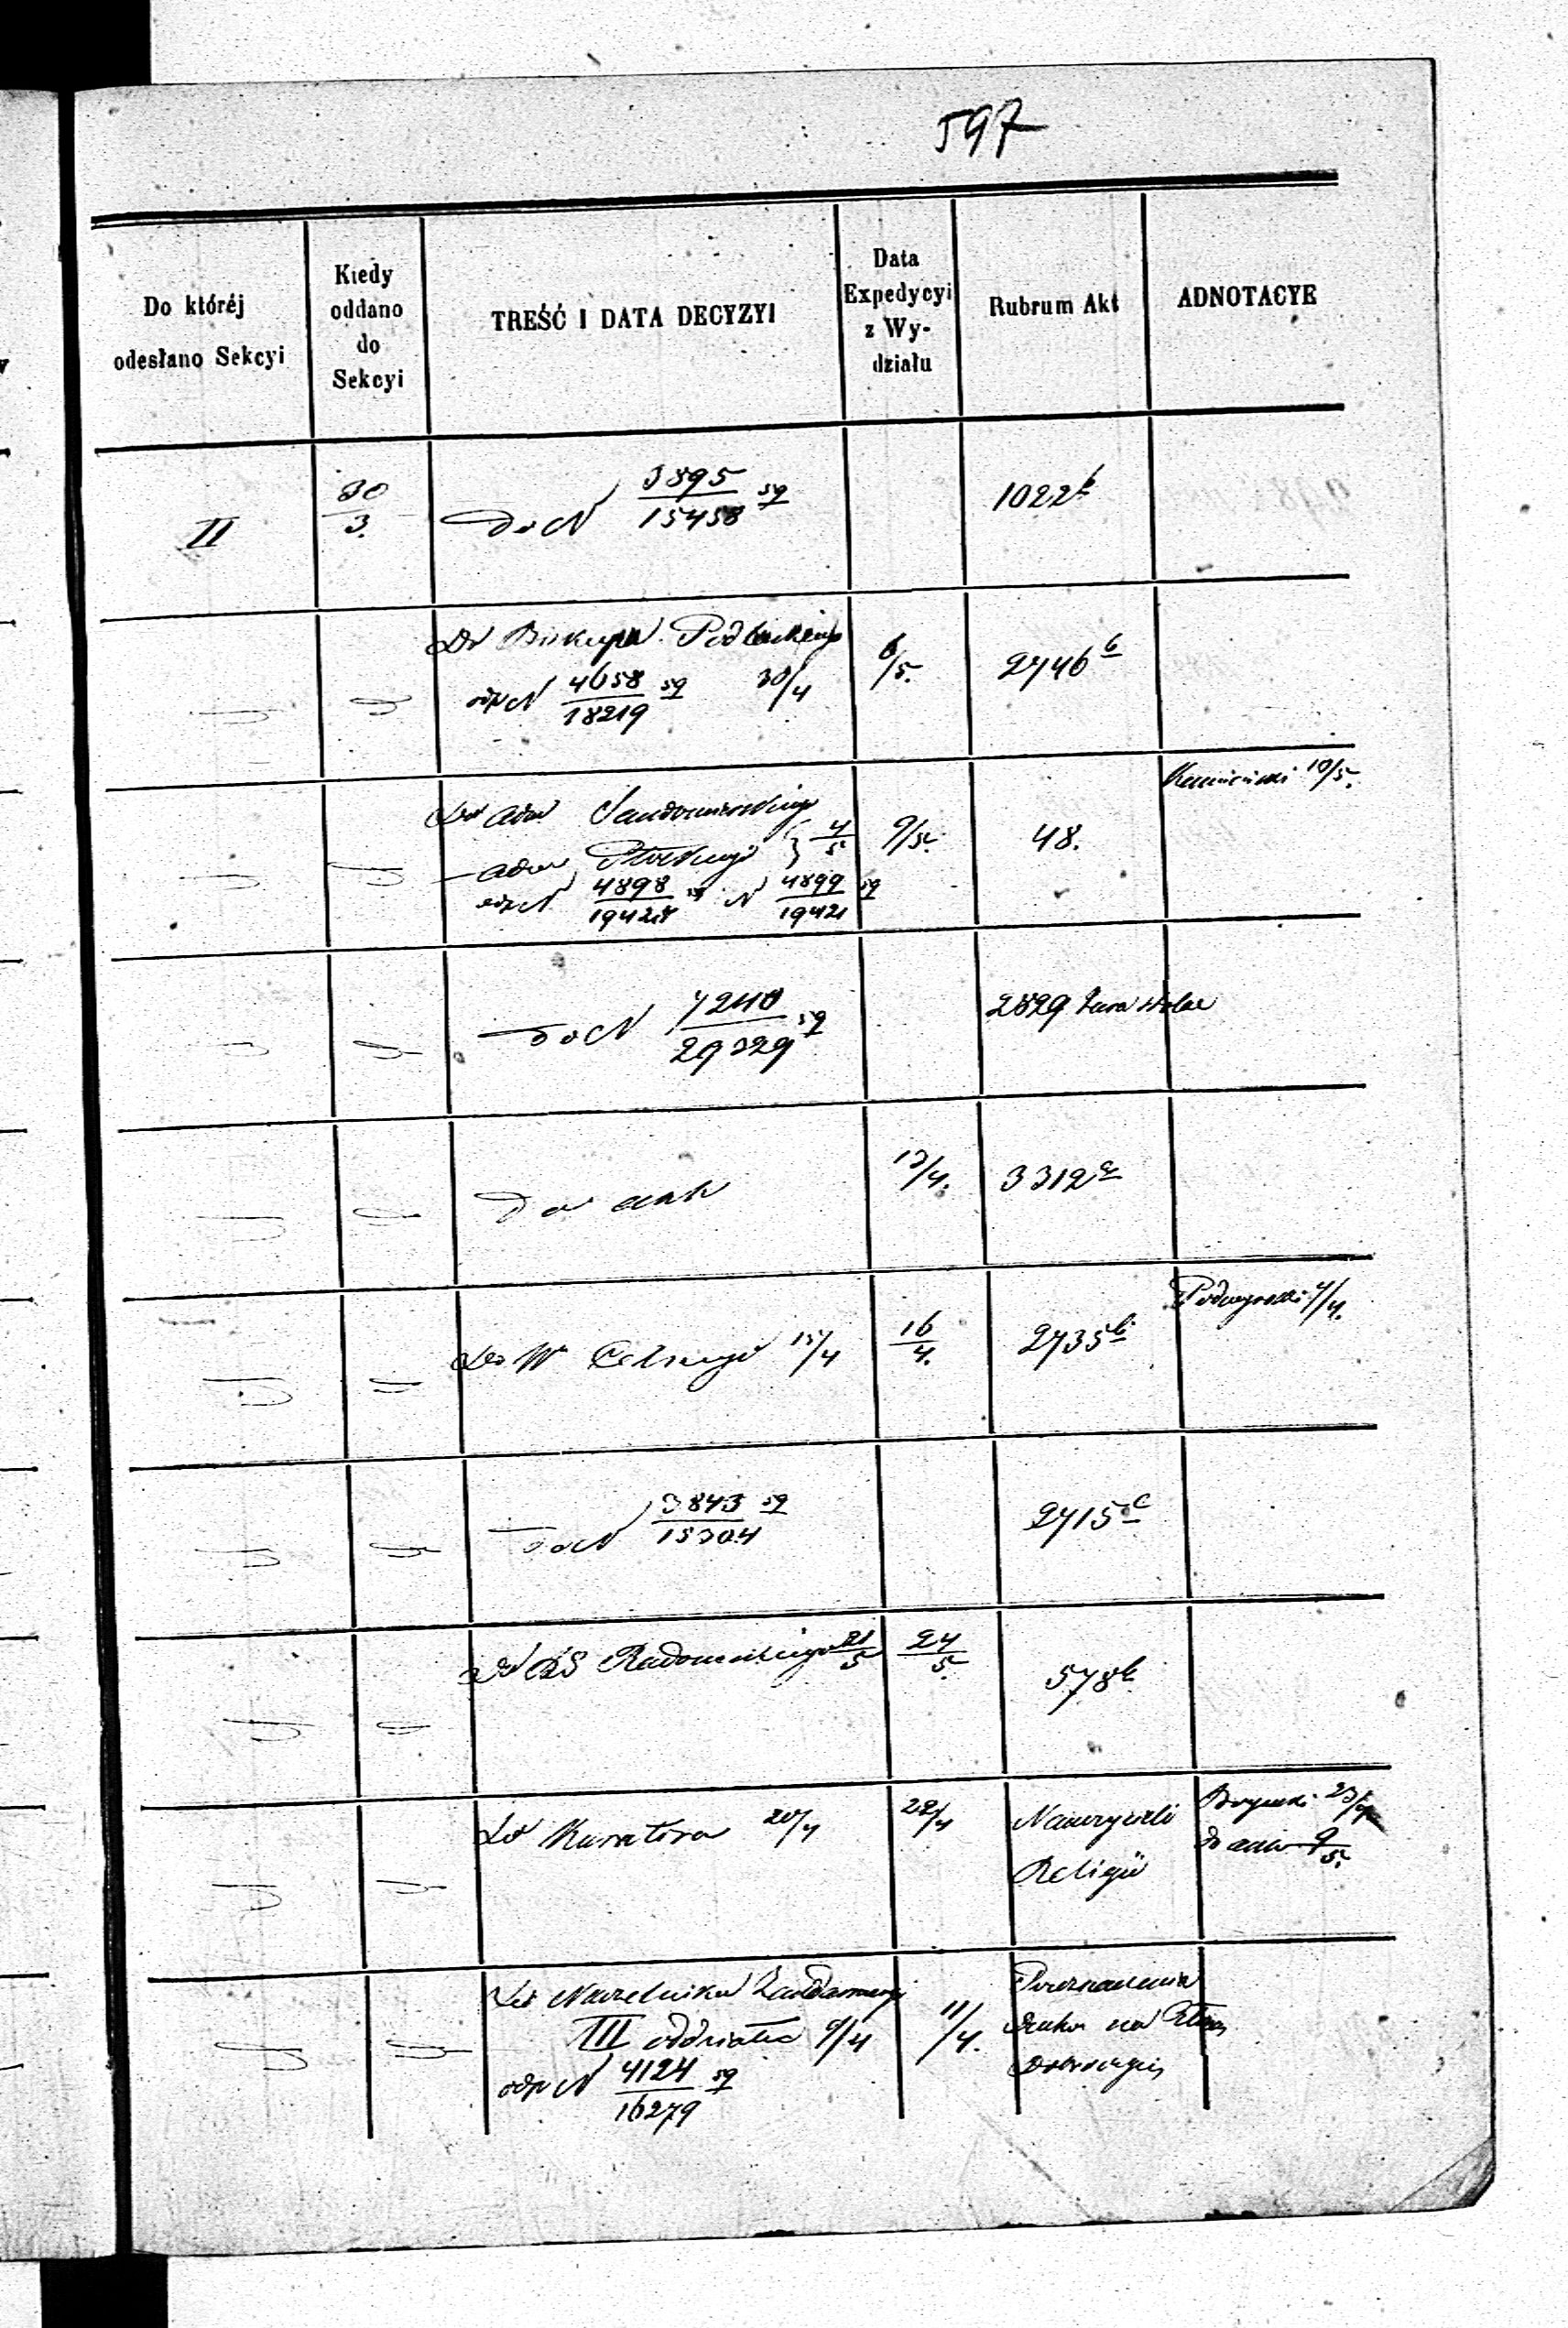 597
Do któréj
odesłano Sekcyi
Kiedy
oddano
do
Sekcyi
TREŚĆ I DATA DECYZYI
Data
Expedycyi
z Wy-
działu
Rubrum Akt
ADNOTACYE
II
30/3.
do N 3895/15458 sq
1022 b
Do Biskupa Podlaskiego
odp N 4658/18219 sq 30/4
6/5.
2746 b
Do Adm Sandomierskiego
Adm Płockiego 4/5
odp N 4898/19428 sq N 4899/19421 sq
9/5.
48.
10/5.
do N 7240/29329 sq
2829
do akt
13/4.
3312 a
Do W 15/4
16/4.
2735 b
4/4.
do N 3843/15304 sq
2715 c
Do RG Radomskiego 21/5
24/5.
578 b
Do Kuratora 20/4
22/4
Nauczyciele
Religii
23/4
do akt 9/5.
Do Naczelnika Żandarmeryi
III oddziału 9/4
odp N 4124/16279 sq
11/4.
na